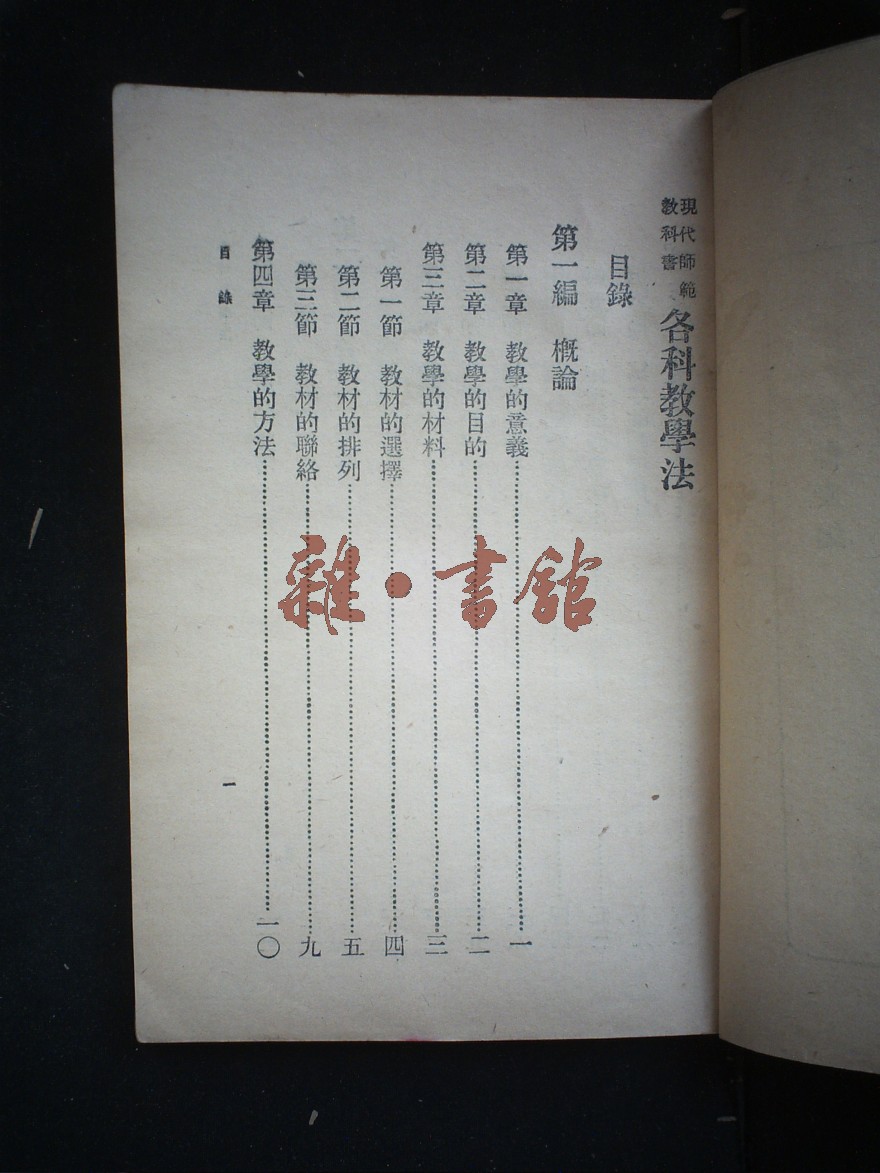 現代師範
教科書
各科教學法
目錄
第一編 概論
第一章 教學的意義……一
第二章 教學的目的……二
第三章 教學的材料……三
第一節 教材的選擇……四
第二節 教材的排列……五
第三節 教材的聯絡……九
第四章 教學的方法……一〇
目錄
一
雜·書館